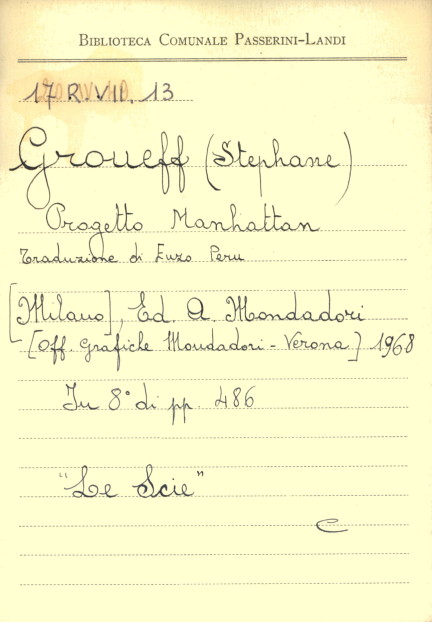 BIBLIOTECA COMUNALE PASSERINI-LANDI
17 R.VII. 13
Groueff (Stephane)
Progetto Manhattan
Traduzione di Enzo Peru
[Milano], Ed. A. Mondadori
[Off. Grafiche Mondadori - Verona] 1968
In 8° di pp. 486
"Le Scie"
C